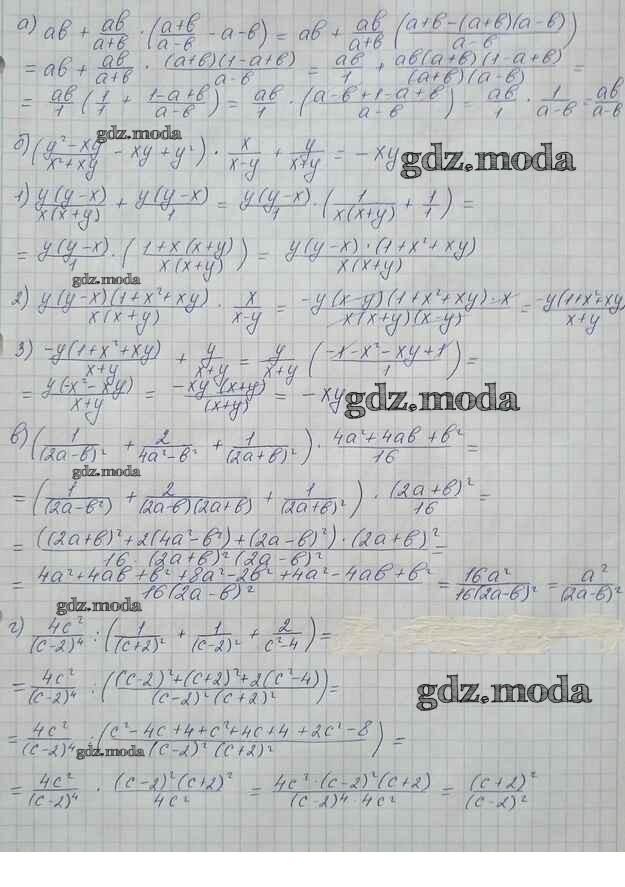 а) ab + ab/(a+b) · ((a+b)/(a-b) - a - b) = ab + ab/(a+b) ((a+b-(a+b)(a-b))/(a-b))
= ab + ab/(a+b) · ((a+b)(1-a+b))/(a-b) = ab/1 + (ab(a+b)(1-a+b))/((a+b)(a-b)) =
= ab/1 (1/1 + (1-a+b)/(a-b)) = ab/1 · ((a-b+1-a+b)/(a-b)) = ab/1 · 1/(a-b) = ab/(a-b)
gdz.moda
б) ((y²-xy)/(x²+xy) - xy + y²) · x/(x-y) + y/(x+y) = -xy
gdz.moda
1) (y(y-x))/(x(x+y)) + (y(y-x))/1 = (y(y-x))/1 · (1/(x(x+y)) + 1/1) =
= (y(y-x))/1 · ((1+x(x+y))/(x(x+y))) = (y(y-x)·(1+x²+xy))/(x(x+y))
gdz.moda
2) (y(y-x)(1+x²+xy))/(x(x+y)) · x/(x-y) = (-y(x-y)(1+x²+xy)·x)/(x(x+y)(x-y)) = (-y(1+x²+xy))/(x+y)
3) (-y(1+x²+xy))/(x+y) + y/(x+y) = y/(x+y) ((-1-x²-xy+1)/1) =
= (y(-x²-xy))/(x+y) = (-xy(x+y))/(x+y) = -xy
gdz.moda
в) (1/(2a-b)² + 2/(4a²-b²) + 1/(2a+b)²) · (4a²+4ab+b²)/16 =
gdz.moda
= (1/(2a-b²) + 2/((2a-b)(2a+b)) + 1/(2a+b)²) · (2a+b)²/16 =
= (((2a+b)²+2(4a²-b²)+(2a-b)²)·(2a+b)²)/(16·(2a+b)²(2a-b)²) =
= (4a²+4ab+b²+8a²-2b²+4a²-4ab+b²)/(16(2a-b)²) = 16a²/(16(2a-b)²) = a²/(2a-b)²
gdz.moda
г) 4c²/(c-2)⁴ : (1/(c+2)² + 1/(c-2)² + 2/(c²-4)) =
= 4c²/(c-2)⁴ : (((c-2)²+(c+2)²+2(c²-4))/((c-2)²(c+2)²)) =
gdz.moda
= 4c²/(c-2)⁴ : ((c²-4c+4+c²+4c+4+2c²-8)/((c-2)²(c+2)²)) =
gdz.moda
= 4c²/(c-2)⁴ · ((c-2)²(c+2)²)/4c² = (4c²·(c-2)²(c+2))/((c-2)⁴·4c²) = (c+2)²/(c-2)²